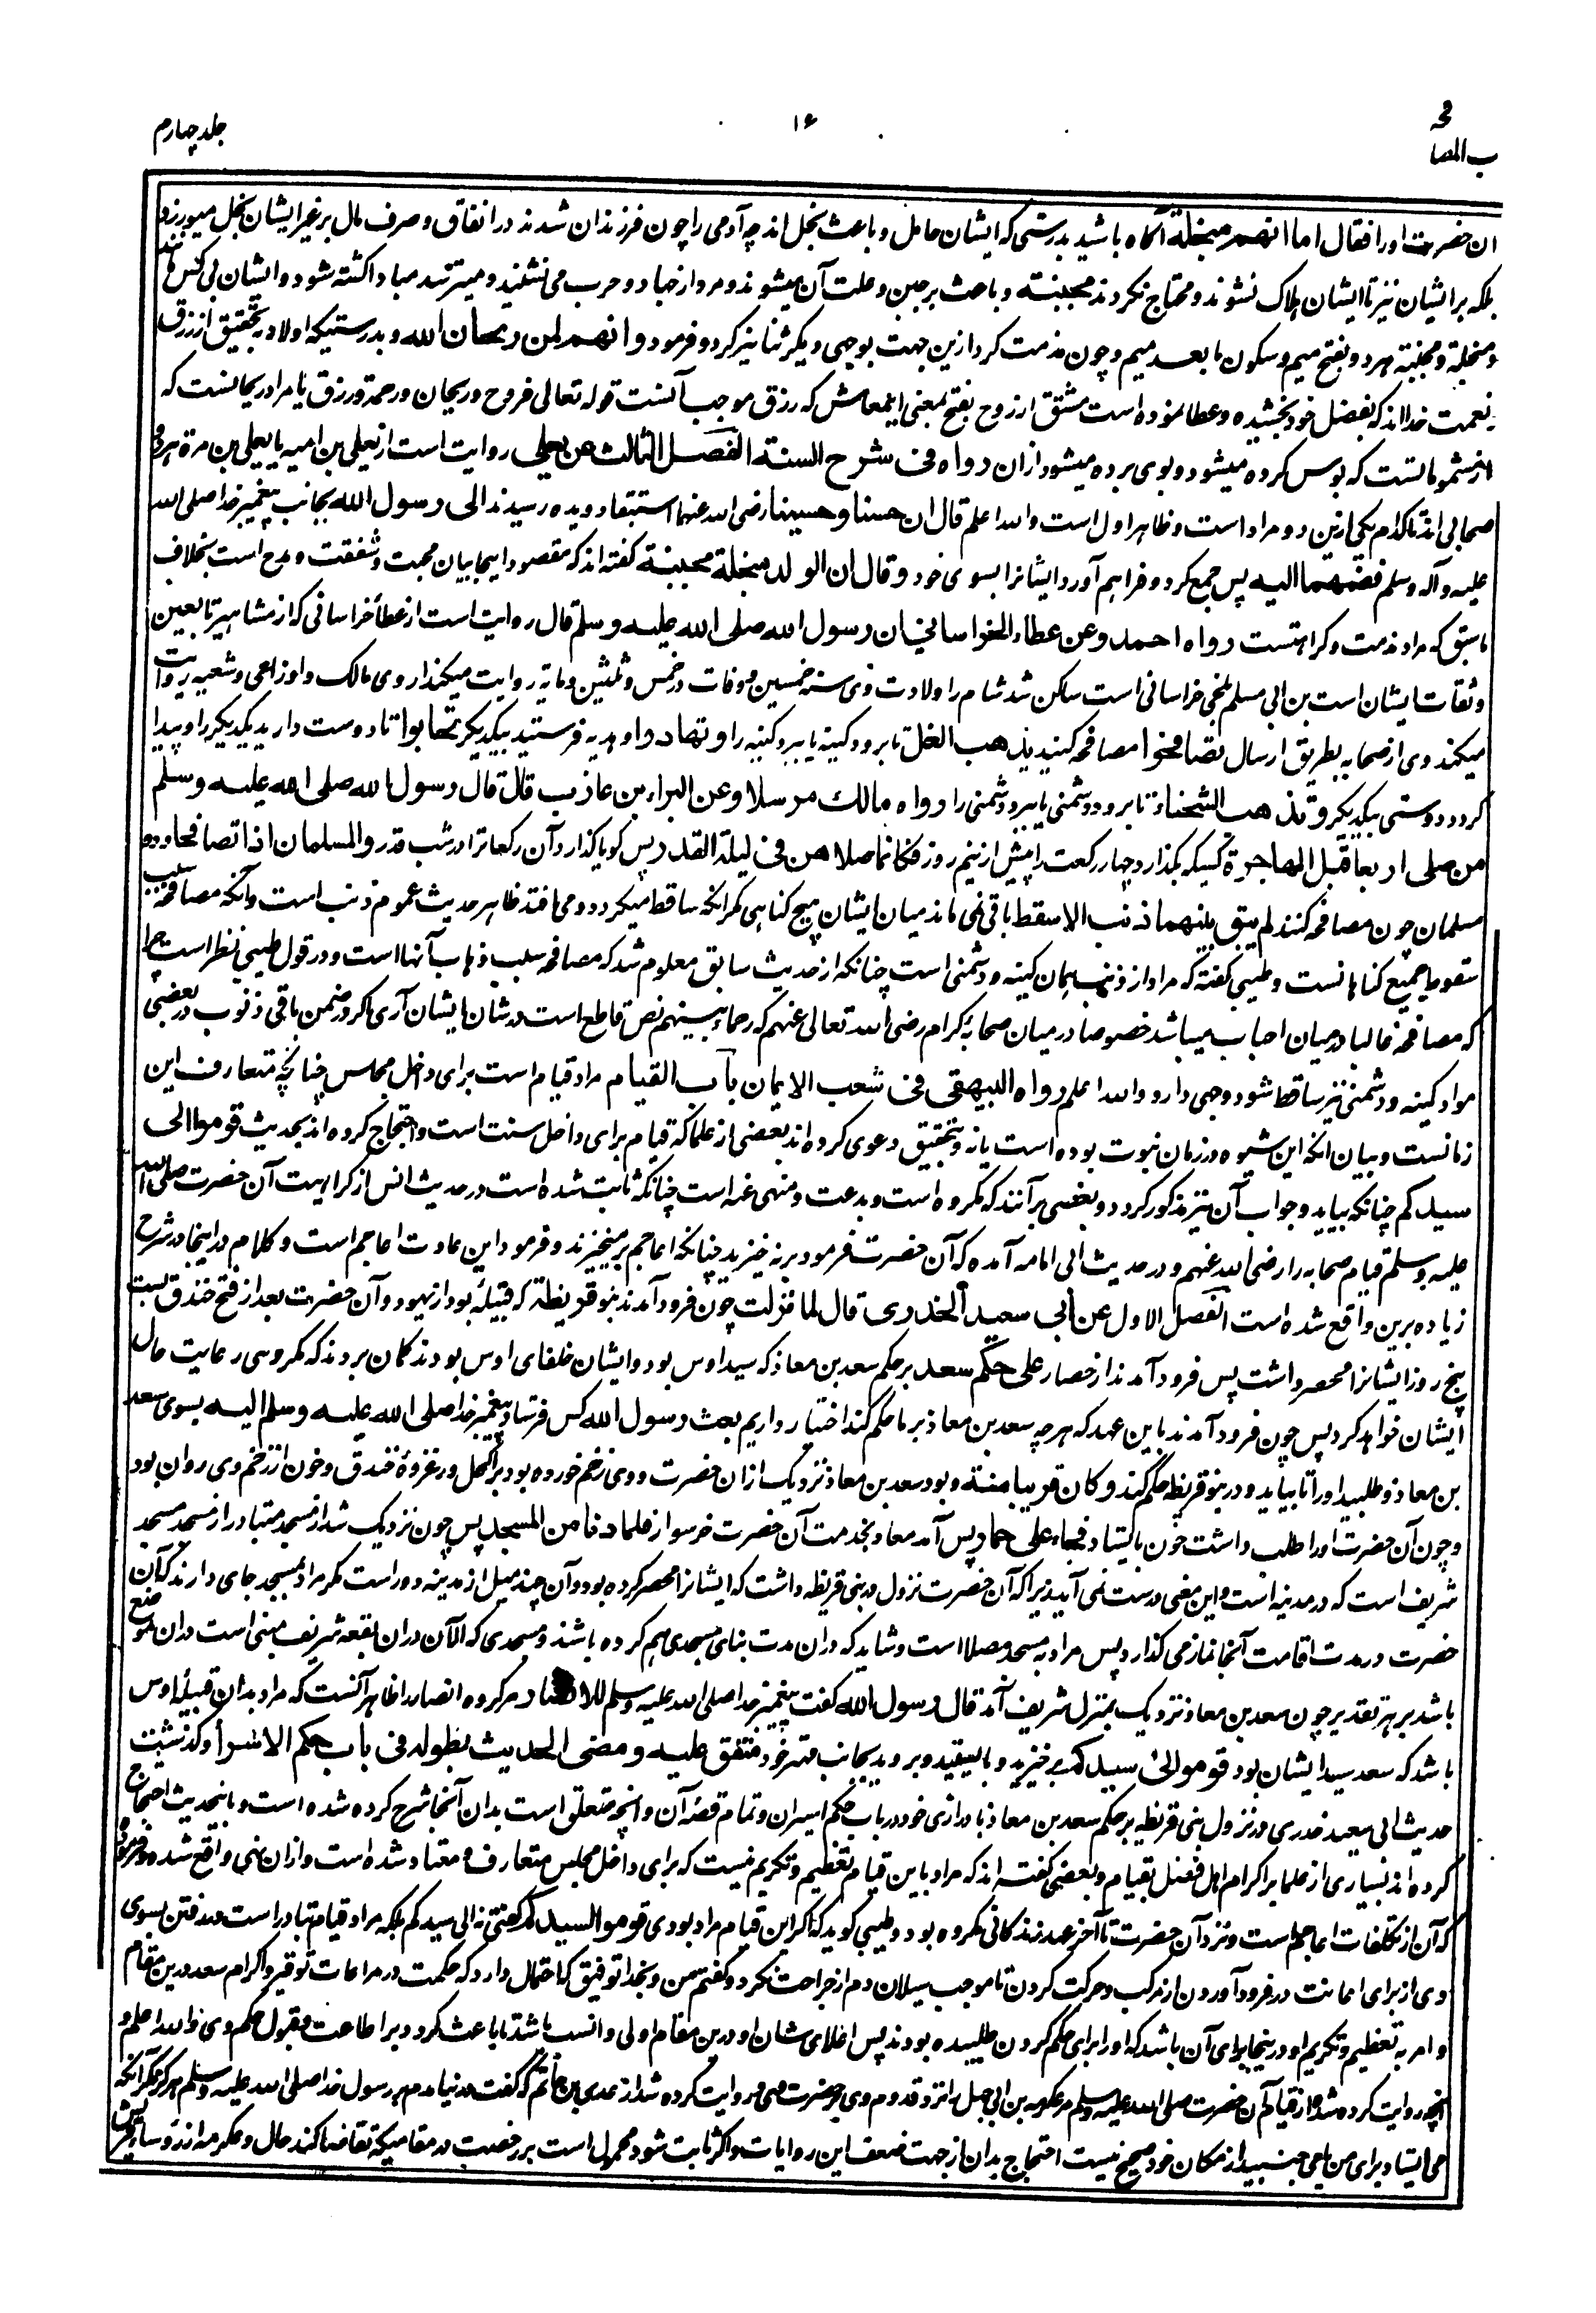 جلد چهارم
۱۶
ب المصا
فحه
ان حضرت اورا فقال اما انهم مبخلة آگاه باشید بدرستی که ایشان حامل و باعث بخل اند چه آدمی را چون فرزندان شدند در انفاق و صرف مال بر غیر ایشان بخل میورزد
بلکه بر ایشان نیز تا ایشان هلاک نشوند و محتاج نگردند مجبنة و باعث بر جبن و علت آن میشوند و مرد از جهاد و حرب می نشیند و میترسد مبادا کشته شود و ایشان بی کس مانند
و مبخلة و مجبنة هر دو بفتح میم و سکون ما بعد میم و چون مذمت کرد ازین جهت بوجهی دیگر ثنا نیز کرد و فرمود وانهم لمن ریحان الله و بدرستیکه اولاد بتحقیق از رزق
و نعمت خدا اند که بفضل خود بخشیده و عطا نموده است مشتق از روح بفتح بمعنی انتعاش که رزق موجب آنست قوله تعالی فروح و ریحان و رحمة و رزق یا مراد ریحانست که
از مشموماتست که بوس کرده میشود و بوی برده میشود ازان رواه فی شرح السنة الفصل الثالث عن یعلی روایت است از یعلی بن امیه یا یعلی بن مرة هر دو
صحابی اند تا کدام یکی ازین دو مراد است و ظاهر اول است و الله اعلم قال ان حسنا و حسینا رضی الله عنهما استبقا دویده رسیدند الی رسول الله بجانب پیغمبر خدا صلی الله
علیه و آله وسلم فضمهما الیه پس جمع کرد و فراهم آورد ایشانرا بسوی خود و قال ان الولد مبخلة مجبنة گفته اند که مقصود اینجا بیان محبت و شفقت و مدح است بخلاف
ما سبق که مراد مذمت و کراهتست رواه احمد وعن عطاء الخراسانی ان رسول الله صلی الله علیه وسلم قال روایت است از عطأ خراسانی که از مشاهیر تابعین
و ثقات ایشان است بن ابی مسلم بلخی خراسانی است ساکن شد شام را ولادت وی سنه خمسین و وفات در خمس و ثلثین و مایة روایت میکند از وی مالک و اوزاعی و شعبه روایت
میکند وی از صحابه بطریق ارسال تصافحوا مصافحه کنید یذهب الغل تا برود کینه یا ببرد کینه را و تهادوا و هدیه فرستید بیکدیگر تحابوا تا دوست دارید یکدیگر را و پیدا
گردد دوستی بیکدیگر و تذهب الشحناء تا برود دشمنی یا ببرد دشمنی را رواه مالک مرسلا وعن البراء بن عازب قال قال رسول الله صلی الله علیه وسلم
من صلی اربعا قبل الهاجرة کسیکه بگذارد چهار رکعت را پیش از نیم روز فکانما صلاهن فی لیلة القدر پس گویا گذارد آن رکعاترا در شب قدر والمسلمان اذا تصافحا و دو
مسلمان چون مصافحه کنند لم یبق بینهما ذنب الا سقط باقی نمی ماند میان ایشان هیچ گناهی مگر انکه ساقط میگردد و می افتد ظاهر حدیث عموم ذنب است و آنکه مصافحه سبب
سقوط جمیع گناهانست و طیبی گفته که مراد از ذنب همان کینه و دشمنی است چنانکه از حدیث سابق معلوم شد که مصافحه سبب ذهاب آنها است و در قول طیبی نظر است چرا
که مصافحه غالبا در میان احباب میباشد خصوصا در میان صحابه کرام رضی الله تعالی عنهم که رحماء بینهم نص قاطع است در شان ایشان آری اگر در ضمن باقی ذنوب در بعضی
مواد کینه و دشمنی نیز ساقط شود وجهی دارد و الله اعلم رواه البیهقی فی شعب الایمان باب القیام مراد قیام است برای داخل مجلس چنانچه متعارف این
زمانست و بیان انکه این شیوه در زمان نبوت بوده است یا نه و بتحقیق دعوی کرده اند بعضی از علما که قیام برای داخل سنت است و احتجاج کرده اند بحدیث قوموا الی
سیدکم چنانکه بیاید و جواب آن نیز مذکور گردد و بعضی بر آنند که مکروه است و بدعت و منهی عنه است چنانکه ثابت شده است در حدیث انس از کراهیت آن حضرت صلی الله
علیه وسلم قیام صحابه را رضی الله عنهم و در حدیث ابی امامه آمده که آن حضرت فرمود بر نخیزید چنانکه اعاجم بر میخیزند و فرمود این عادت اعاجم است و کلام در اینجا در شرح
زیاده برین واقع شده است الفصل الاول عن ابی سعید الخدری قال لما نزلت چون فرود آمدند بنو قریظة که قبیله بود از یهود و آن حضرت بعد از فتح خندق بیست
پنج روز ایشانرا محصر داشت پس فرود آمدند از حصار علی حکم سعد بر حکم سعد بن معاذ که سید اوس بود و ایشان خلفای اوس بودند گمان بردند که مگر وی رعایت حال
ایشان خواهد کرد پس چون فرود آمدند باین عهد که هر چه سعد بن معاذ بر ما حکم کند اختیار داریم بعث رسول الله کس فرستاد پیغمبر خدا صلی الله علیه وسلم الیه بسوی سعد
بن معاذ و طلبید اورا تا بیاید و در بنو قریظه حکم کند و کان قریبا منه و بود سعد بن معاذ نزدیک ازان حضرت و وی زخم خورده بود بر اکحل در غزوه خندق و خون از زخم وی روان بود
و چون آن حضرت اورا طلب داشت خون بایستاد فجاء علی حمار پس آمد معاذ بخدمت آن حضرت خر سوار فلما دنا من المسجد پس چون نزدیک شد از مسجد متبادر از مسجد مسجد
شریف است که در مدینه است و این معنی درست نمی آید زیرا که آن حضرت نزول در بنی قریظه داشت که ایشانرا محصر کرده بود و آن چند میل از مدینه دور است مگر مراد بمسجد جای دارند که آن
حضرت در مدت اقامت آنجا نماز می گذارد پس مراد به مسجد مصلا است و شاید که دران مدت بنای مسجدی هم کرده باشند و مسجدی که الآن دران بقعه شریف مبنی است دران موضع
باشد بر هر تقدیر چون سعد بن معاذ نزدیک بمنزل شریف آمد قال رسول الله گفت پیغمبر خدا صلی الله علیه وسلم للانصار مر گروه انصار را ظاهر آنست که مراد بدان قبیله اوس
باشد که سعد سید ایشان بود قوموا الی سیدکم برخیزید و بایستید و بروید بجانب مهتر خود متفق علیه و مضی الحدیث بطوله فی باب حکم الاسراء و گذشت
حدیث ابی سعید خدری در نزول بنی قریظه بر حکم سعد بن معاذ با درازی خود در باب حکم اسیران و تمام قصه آن و آنچه متعلق است بدان آنجا شرح کرده شده است و باینحدیث احتجاج
کرده اند بسیاری از علما بر اکرام اهل فضل بقیام و بعضی گفته اند که مراد باین قیام تعظیم و تکریم نیست که برای داخل مجلس متعارف و معتاد شده است و ازان نهی واقع شده و فرموده
که آن از تکلفات اعاجم است و نزد آن حضرت تا آخر عهد زندگانی مکروه بود و طیبی گوید که اگر این قیام مراد بودی قوموا لسیدکم گفتی نه الی سیدکم بلکه مراد قیام تبادر است در رفتن بسوی
وی از برای اعانت در فرود آوردن از مرکب و حرکت کردن تا موجب سیلان دم از جراحت نگردد و گفتم من و بخدا توفیق که احتمال دارد که حکمت در مراعات توقیر و اکرام سعد درین مقام
و امر به تعظیم و تکریم او در ینجا برای آن باشد که اورا برای حکم کردن طلبیده بودند پس اعلای شان او درین مقام اولی و انسب باشد تا باعث گردد بر اطاعت و قبول حکم وی و الله اعلم و
آنچه روایت کرده شده از قیام آن حضرت صلی الله علیه وسلم مر عکرمه بن ابی جهل را نزد قدوم وی بر حضرت وی و روایت کرده شد از عدی بن حاتم که گفت در نیامدم بر رسول خدا صلی الله علیه وسلم هرگز مگر آنکه
می ایستاد برای من یا می جنبید از مکان خود صحیح نیست احتجاج بدان از جهت ضعف این روایات و اگر ثابت شود محمول است بر رخصت در مقامیکه تقاضا کند حال و عکرمه از رؤساء قریش